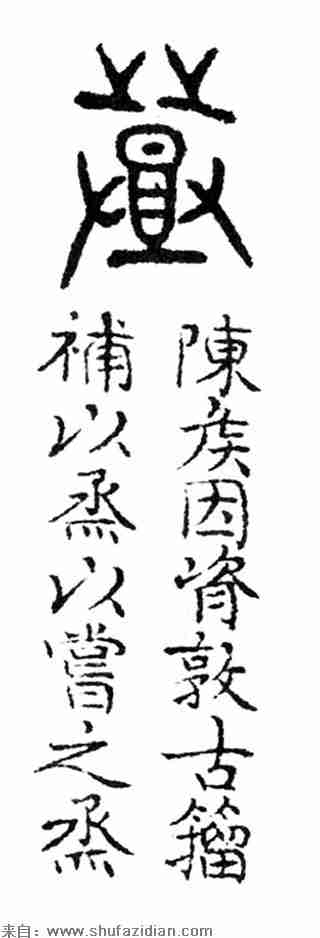 陳矦因脊敦古籀
補以烝以嘗之烝
来自：www.shufazidian.com